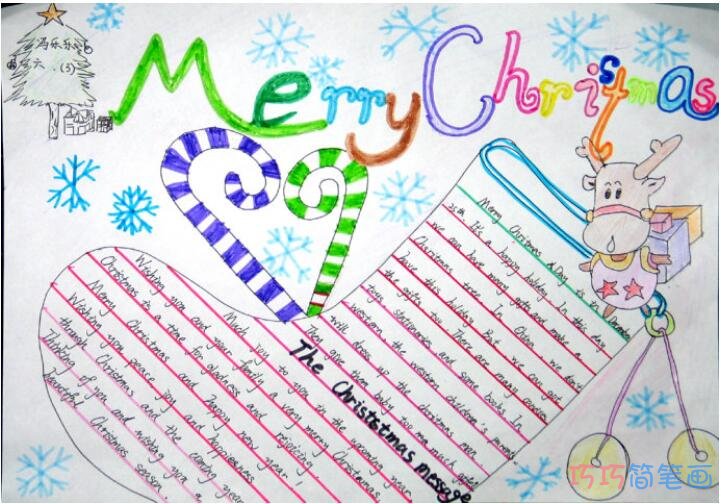 冯乐乐
六.(3)
Merry Christmas
Merry Christmas Day is
25th It's a happy holiday In this day
we can have many gifts and make a
Chritmas tree In China, we don't
have this holiday But we can get
the gifts too There are many candies
toys stationeries and some books In
western, the western children's parents
will dress up the christmas men
They give them baby too
much gifts
The Christstmas message
Much joy to you in the
year
Wishing you and your family a very merry Christmas,
Christmas is a time for gladness and rejoicing
Merry Christmas and happy new year
Wishing you peace joy and happiness
through Christmas and the coming year
Thinking of you and missing you a
beautiful Christmas season.
巧巧简笔画